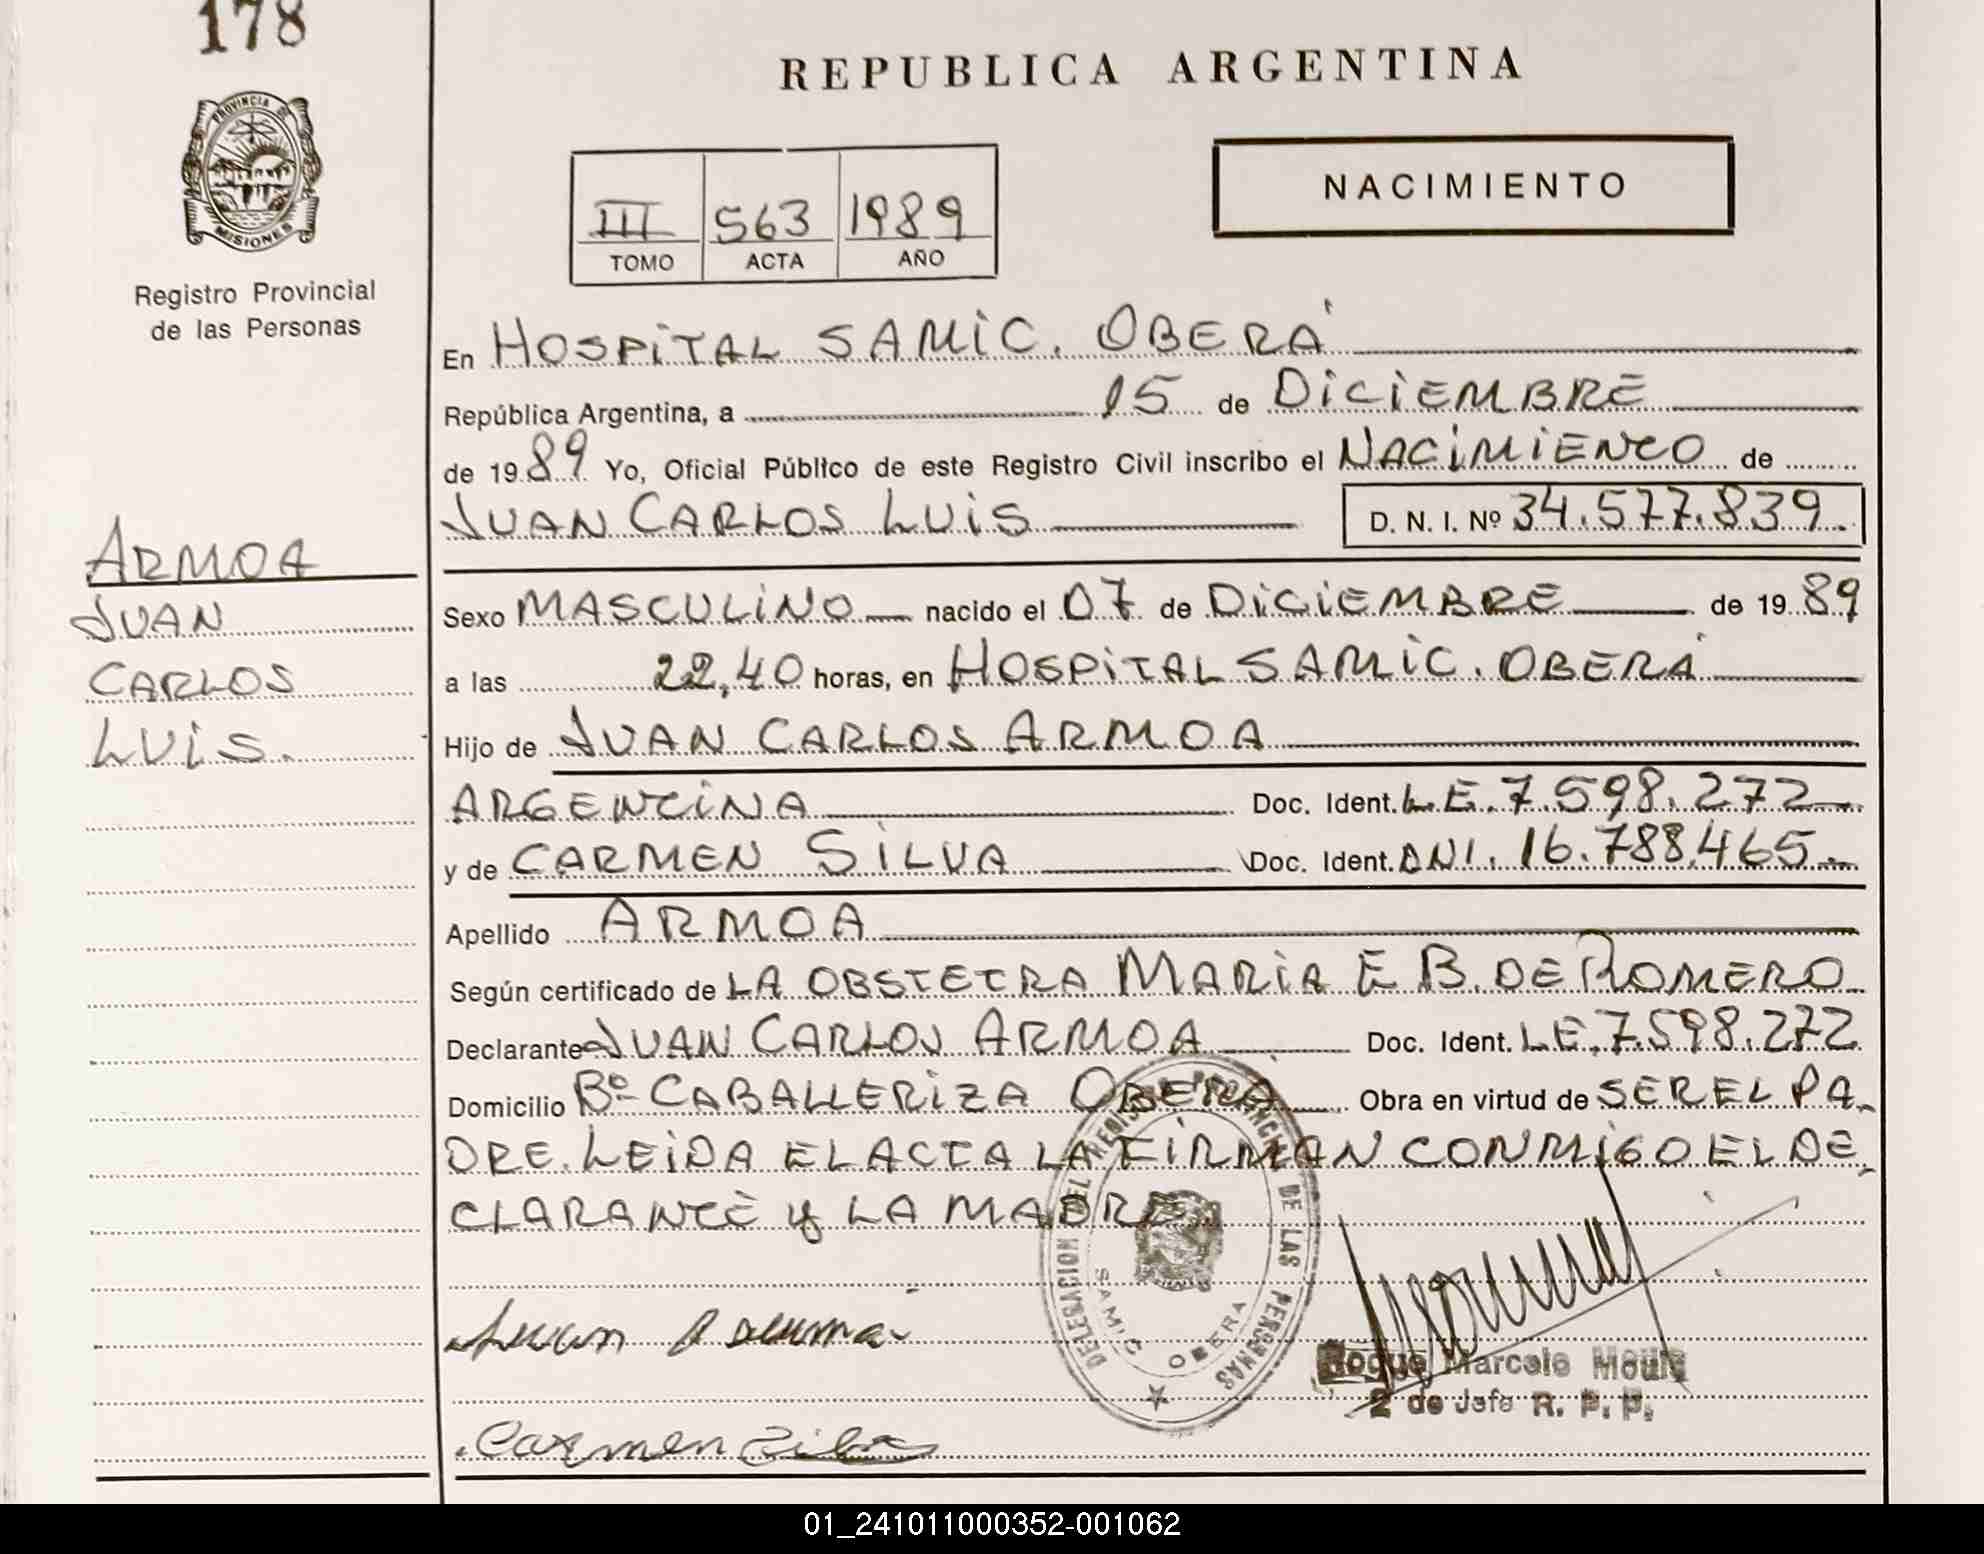 178
REPUBLICA ARGENTINA
PROVINCIA DE
MISIONES
Registro Provincial
de las Personas
III 563 1989
TOMO ACTA AÑO
NACIMIENTO
En HOSPITAL SAMIC. OBERÁ
República Argentina, a 15 de DICIEMBRE
de 1989 Yo, Oficial Público de este Registro Civil inscribo el NACIMIENTO de
JUAN CARLOS LUIS D. N. I. Nº 34.577.839
ARMOA
JUAN
CARLOS
LUIS.
Sexo MASCULINO nacido el 07 de DICIEMBRE de 1989
a las 22,40 horas, en HOSPITAL SAMIC. OBERÁ
Hijo de JUAN CARLOS ARMOA
ARGENTINA Doc. Ident. L.E. 7.598.272
y de CARMEN SILVA Doc. Ident. DNI. 16.788.465
Apellido ARMOA
Según certificado de LA OBSTETRA MARIA E B. DE ROMERO
Declarante JUAN CARLOS ARMOA Doc. Ident. LE. 7.598.272
Domicilio Bº CABALLERIZA OBERÁ Obra en virtud de SER EL PA-
DRE. LEIDA EL ACTA LA FIRMAN CONMIGO EL DE-
CLARANTE y LA MADRE
DELEGACION DEL REGISTRO PROVINCIAL DE LAS PERSONAS
SAMIC OBERA
Juan
Carmen Silva
Roque Marcelo
2 de Jefe R. P. P.
01_241011000352-001062